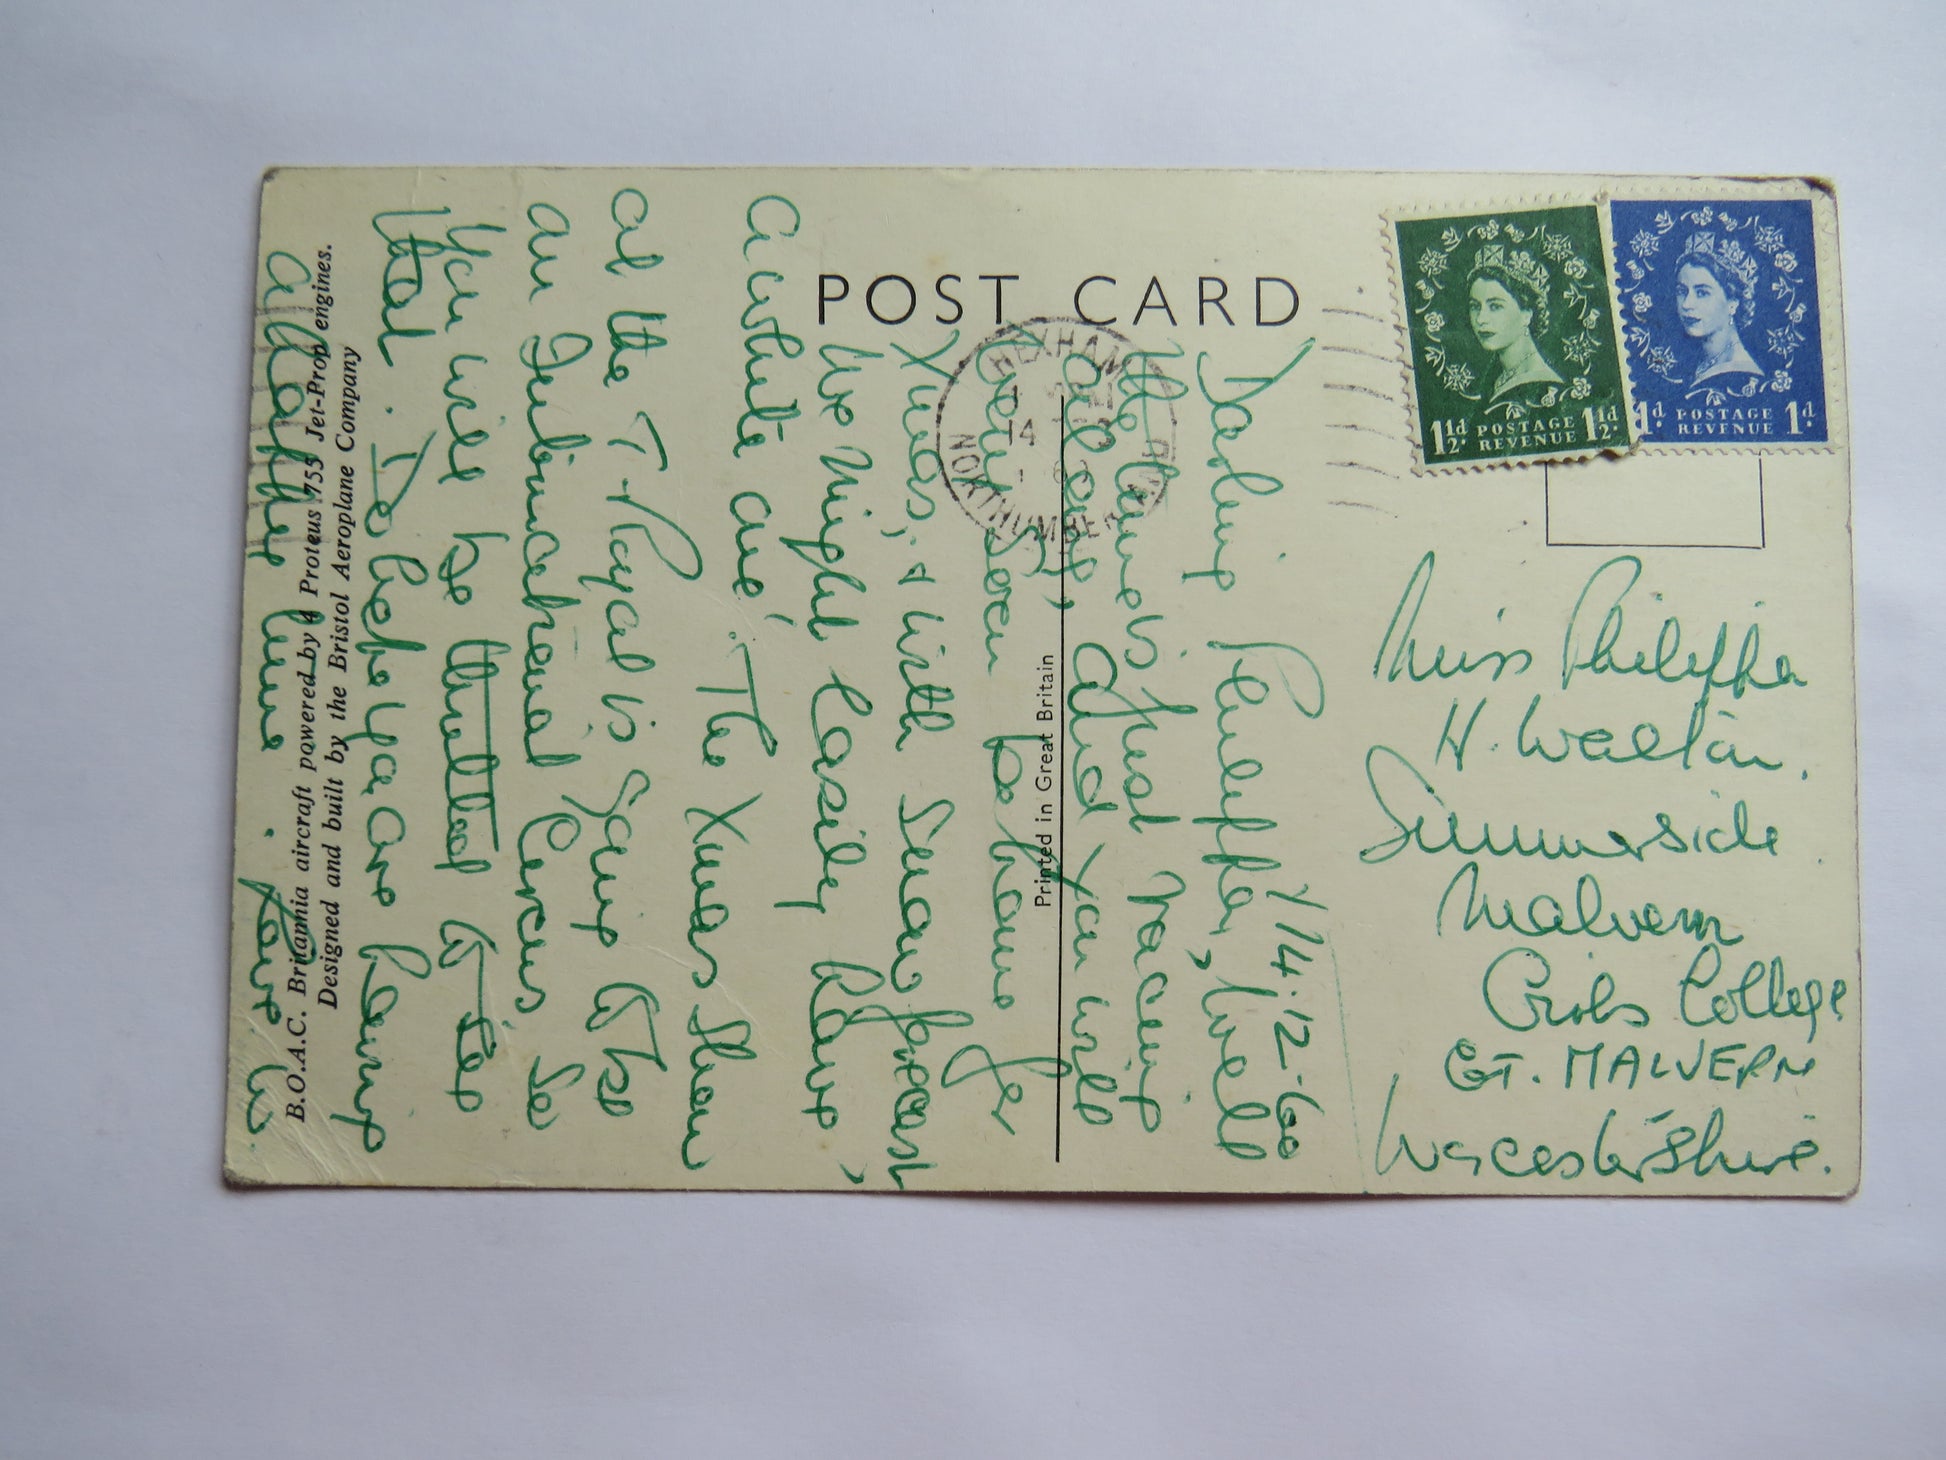 POST CARD
1½d POSTAGE REVENUE 1½d
1d POSTAGE REVENUE 1d
HEXHAM
14
NORTHUMBERLAND
Y/14.12.60
Darling Philippa, Well
the time is just racing
along, and you will
very soon be home for
Xmas, & with snow forecast,
we might easily have
a white one. The Xmas Show
at the T. Royal is going to be
an International Circus, so
you will be thrilled to see
that. I do hope you are having
a lovely time. Love
B.O.A.C. Britannia aircraft powered by 4 Proteus 755 Jet-Prop engines.
Designed and built by the Bristol Aeroplane Company
Printed in Great Britain
Miss Philippa
H. Walton.
Summerside
Malvern
Girls College
GT. MALVERN
Worcestershire.